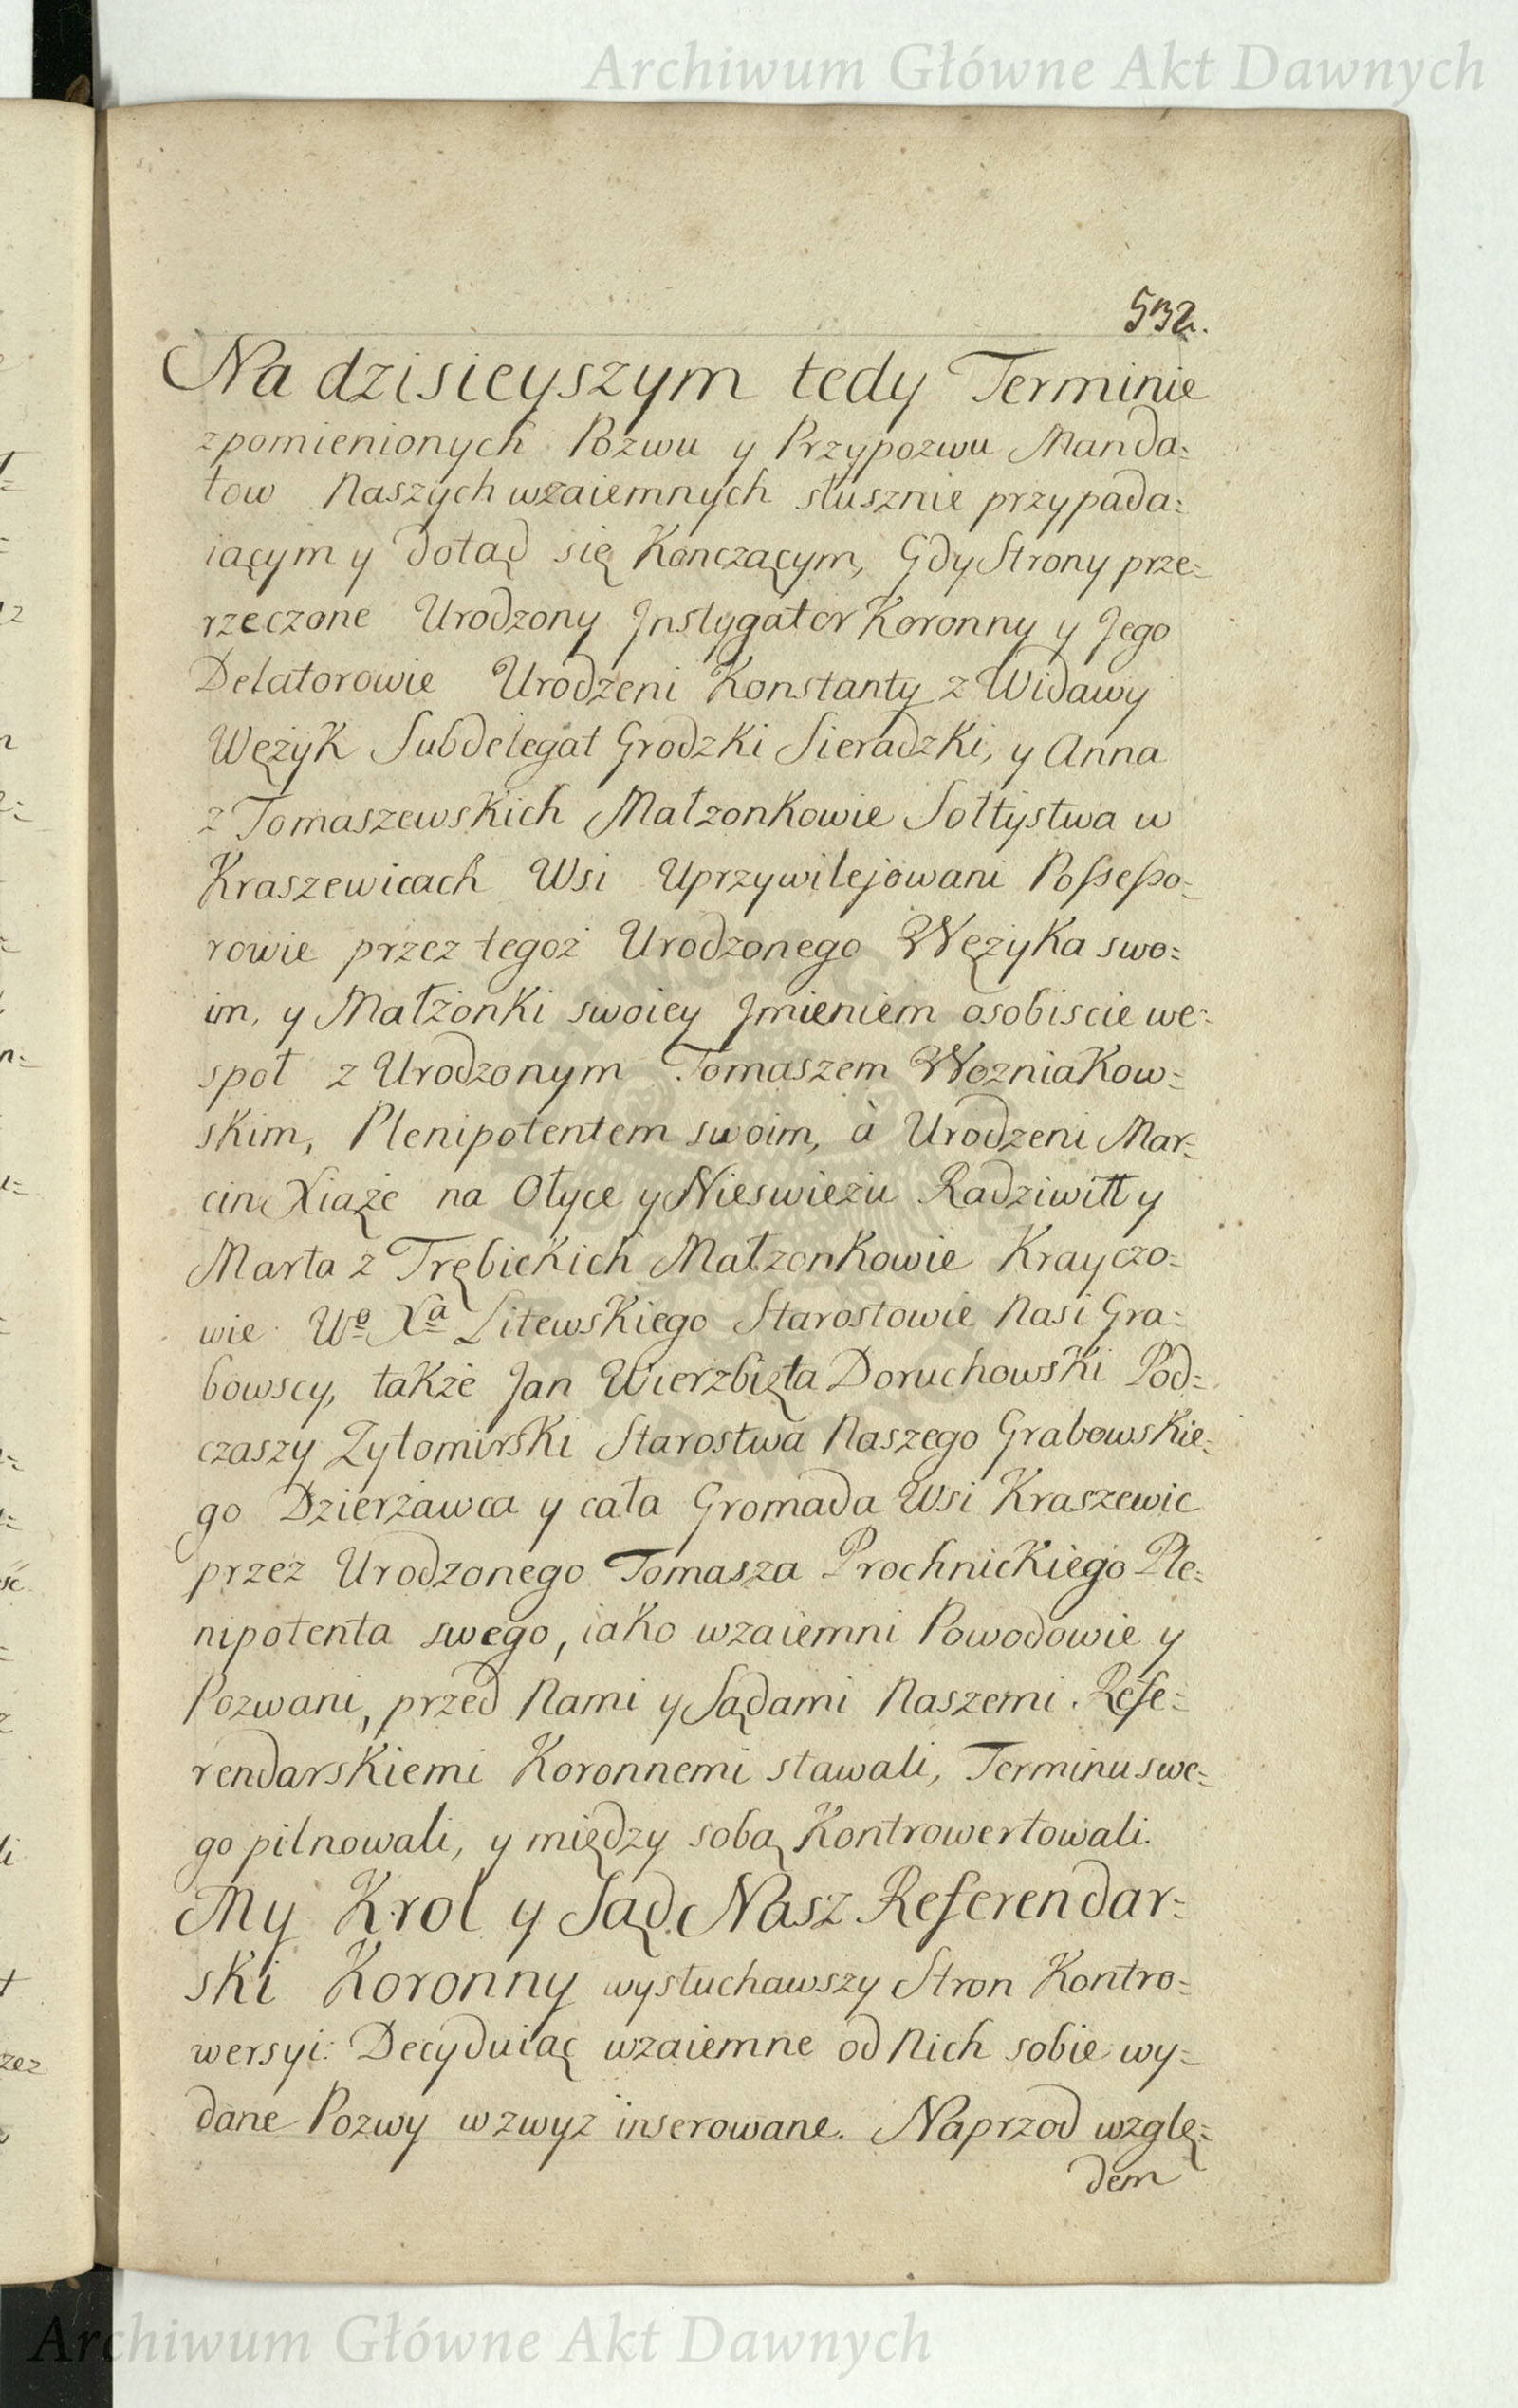 Archiwum Główne Akt Dawnych
532.
Na dzisieyszym tedy Terminie
zpomienionych Pozwu y Przypozwu Manda=
tow Naszych wzaiemnych słusznie przypada=
iącym y dotąd się Konczącym, Gdy Strony prze=
rzeczone Urodzony Jnstygator Koronny y Jego
Delatorowie Urodzeni Konstanty z Widawy
Wężyk Subdelegat Grodzki Sieradzki, y Anna
z Tomaszewskich Małzonkowie Sołtystwa w
Kraszewicach Wsi Uprzywilejowani Possesso=
rowie przez tegoż Urodzonego Wężyka swo=
im, y Małżonki swoiey Jmieniem osobiscie we=
społ z Urodzonym Tomaszem Wozniakow=
skim, Plenipotentem swoim, à Urodzeni Mar=
cin Xiąże na Ołyce y Nieswieżu Radziwiłł y
Marta z Trębickich Małzonkowie Krayczo=
wie Wo Xa Litewskiego Starostowie Nasi Gra=
bowscy, także Jan Wierzbięta Doruchowski Pod=
czaszy Zytomirski Starostwa Naszego Grabowskie=
go Dzierżawca y cała Gromada Wsi Kraszewic
przez Urodzonego Tomasza Prochnickiego Ple=
nipotenta swego, iako wzaiemni Powodowie y
Pozwani, przed Nami y Sądami Naszemi Refe=
rendarskiemi Koronnemi stawali, Terminu swe=
go pilnowali, y między sobą Kontrowertowali.
My Krol y Sąd Nasz Referendar=
ski Koronny wysłuchawszy Stron Kontro=
wersyi: Decyduiąc wzaiemne od Nich sobie wy=
dane Pozwy wzwyz inserowane. Naprzod wzglę=
dem
Archiwum Główne Akt Dawnych